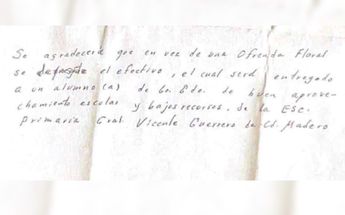 Se agradecerá que en vez de una Ofrenda Floral
se deposite el efectivo, el cual será entregado
a un alumno(a) de 6o. Gdo. de buen aprove-
chamiento escolar y bajos recursos, de la Esc.
Primaria Gral. Vicente Guerrero de Cd. Madero